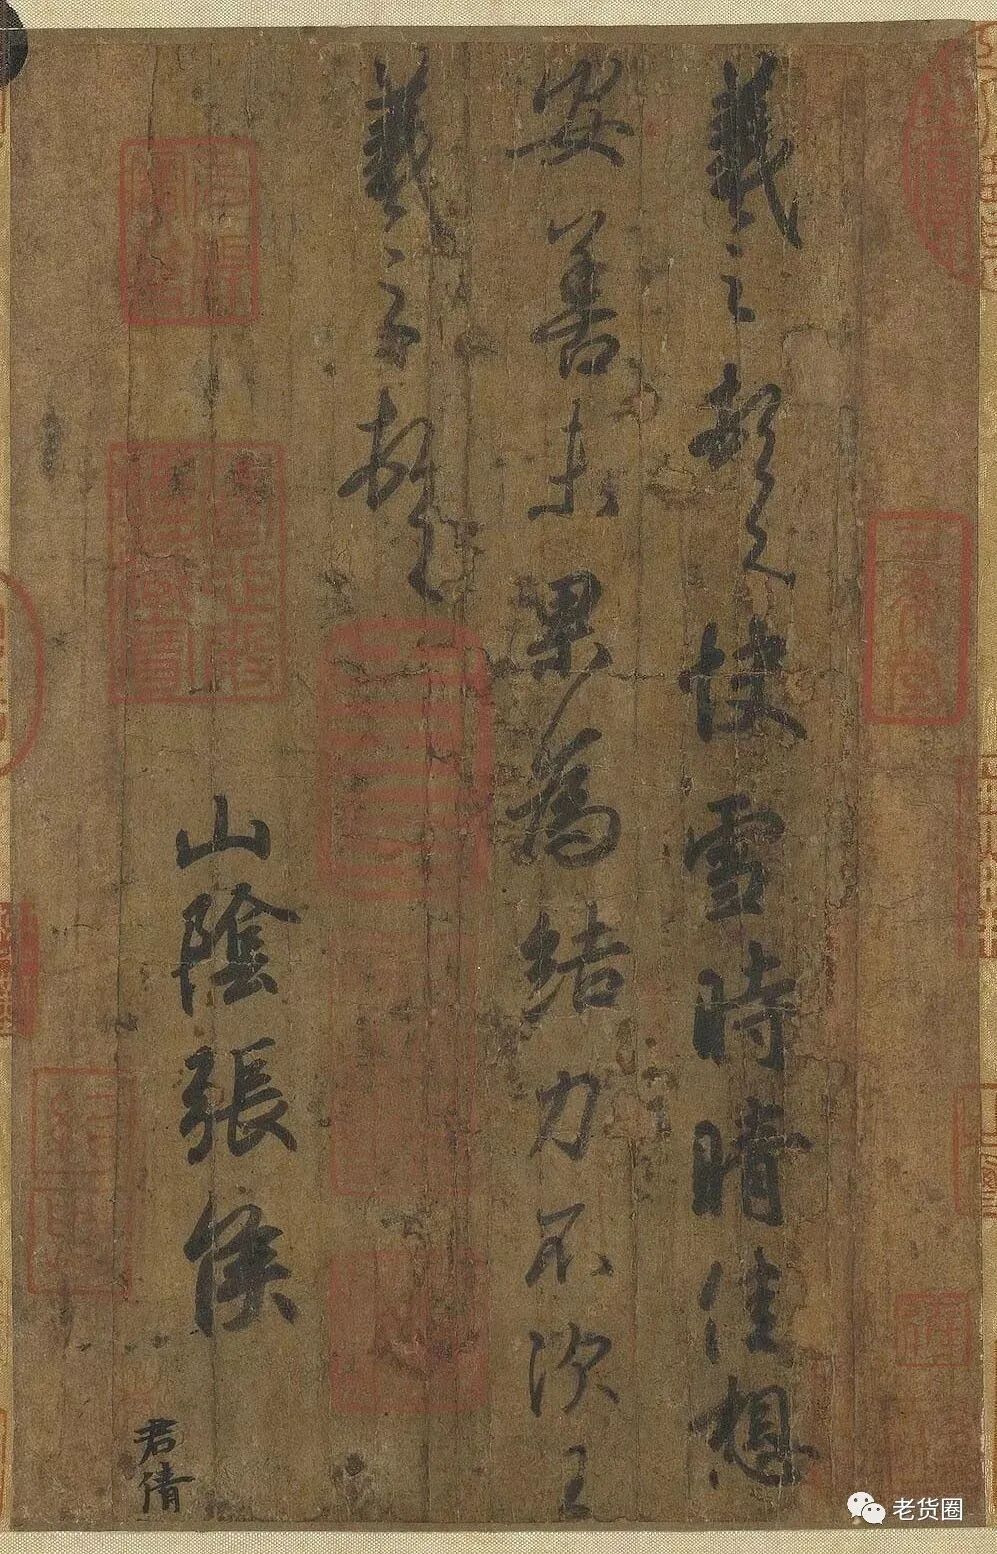 羲之頓首快雪時晴佳想
安善未果為結力不次王
羲之頓首
山陰張侯
君倩
三希堂
老货圈